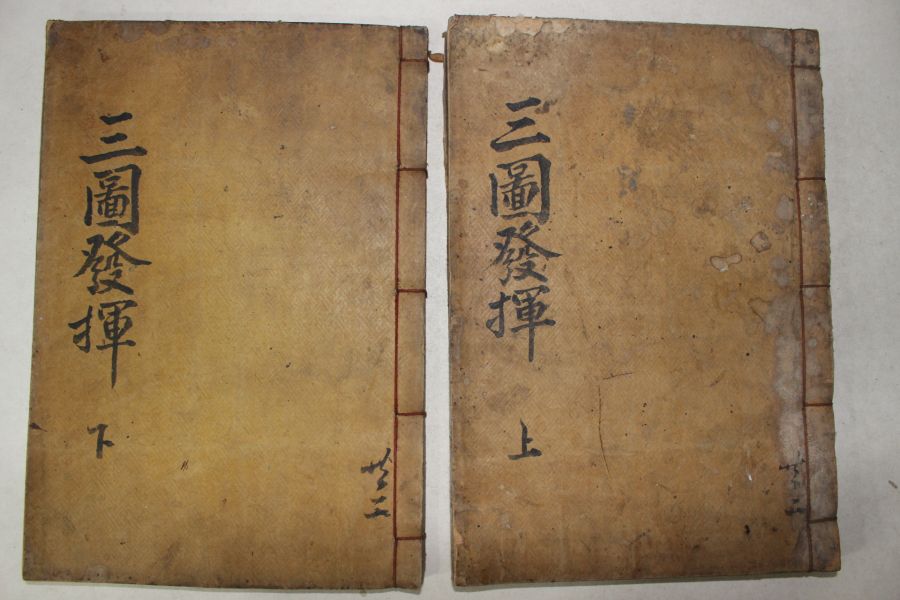 三圖發揮
上
共二
三圖發揮
下
共二